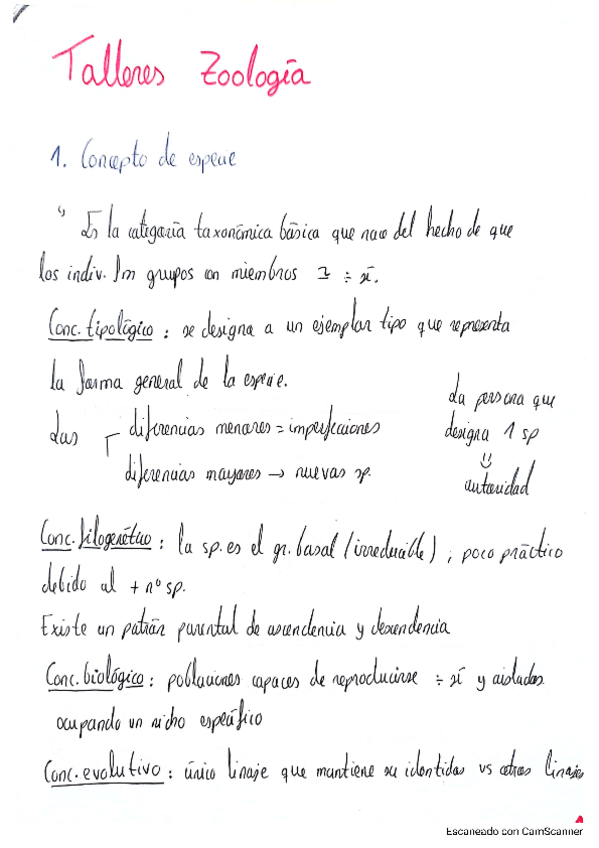 Talleres Zoología
1. Concepto de especie
↳ Es la categoría taxonómica básica que nace del hecho de que
los indiv. grupos con miembros ÷ sí.
Conc. tipológico : se designa a un ejemplar tipo que representa
la forma general de la especie.
Las diferencias menores = imperfecciones
diferencias mayores → nuevas sp.
La persona que
designa 1 sp
autoridad
Conc. filogenético : la sp. es el gr. basal (irreducible), poco práctico
debido al + nº sp.
Existe un patrón parental de ascendencia y descendencia
Conc. biológico : poblaciones capaces de reproducirse ÷ sí y aisladas
ocupando un nicho específico
Conc. evolutivo : único linaje que mantiene su identidad vs otros linajes
Escaneado con CamScanner